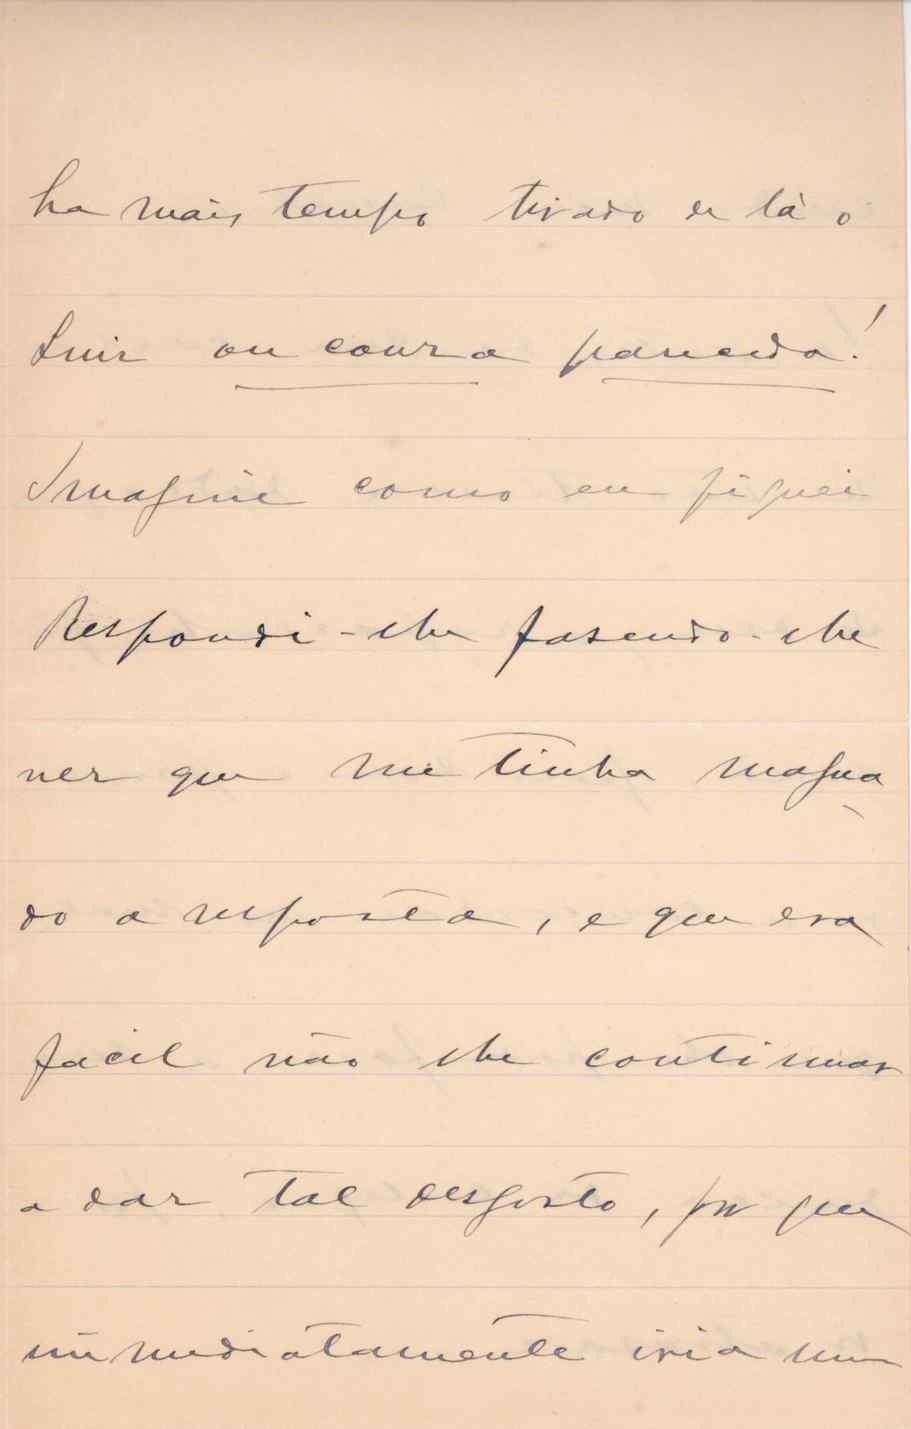 ha mais tempo tirado de lá o
Luiz ou couza parecida!
Imagine como eu fiquei
Respondi-lhe fasendo-lhe
ver que me tinha magoa
do a resposta, e que era
facil não lhe continuar
a dar tal desgosto, por que
immediatamente iria